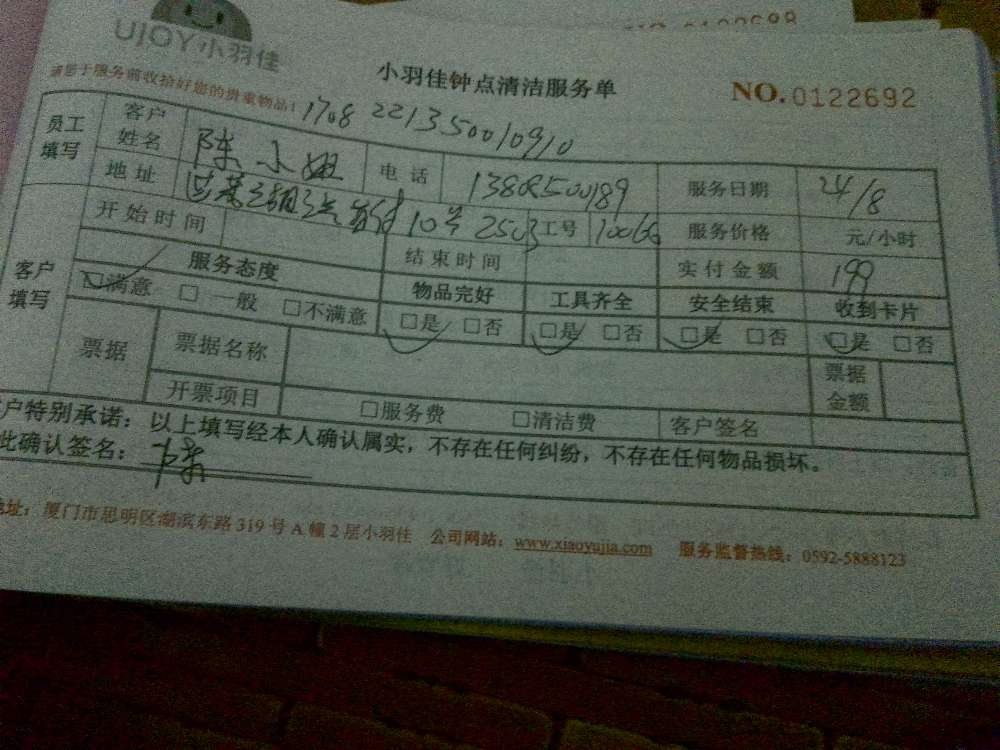 NO. 0122688
UJOY小羽佳
小羽佳钟点清洁服务单
NO. 0122692
请您于服务前收拾好您的贵重物品!
1708221350010910
员工填写 客户姓名 陈小姐 电话 13808500189 服务日期 24/8
地址 10号2503 工号 服务价格 元/小时
客户填写 开始时间 结束时间 实付金额 199
服务态度 物品完好 工具齐全 安全结束 收到卡片
☑满意 □一般 □不满意 ☑是 □否 ☑是 □否 ☑是 □否 ☑是 □否
票据 票据名称 票据金额
开票项目 □服务费 □清洁费 客户签名
户特别承诺：以上填写经本人确认属实，不存在任何纠纷，不存在任何物品损坏。
此确认签名：陈
地址：厦门市思明区湖滨东路319号A幢2层小羽佳 公司网站：www.xiaoyujia.com 服务监督热线：0592-5888123